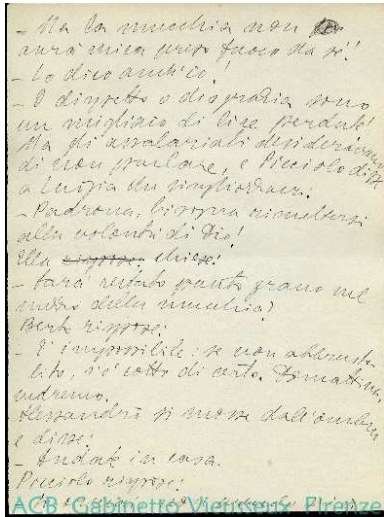 - Ma la mucchia non
avrà mica preso fuoco da sé!
- Lo dico anch'io!
- O dispetto o disgrazia sono
un migliaio di lire perdute!
Ma gli assalariati desideravano
di non parlare, e Picciolo disse
a Luigia che singhiozzava:
- Padrona, bisogna rimettersi
alla volontà di Dio!
Ella rispose: chiese:
- Sarà restato punto grano nel
mezzo della mucchia?
Berto rispose:
- È impossibile: se non abbrusto-
lito, s'è cotto di certo. Domattina,
vedremo.
Alessandro si mosse dall'ombra
e disse:
- Andate in casa.
Picciolo rispose:
ACB, Gabinetto Vieusseux, Firenze